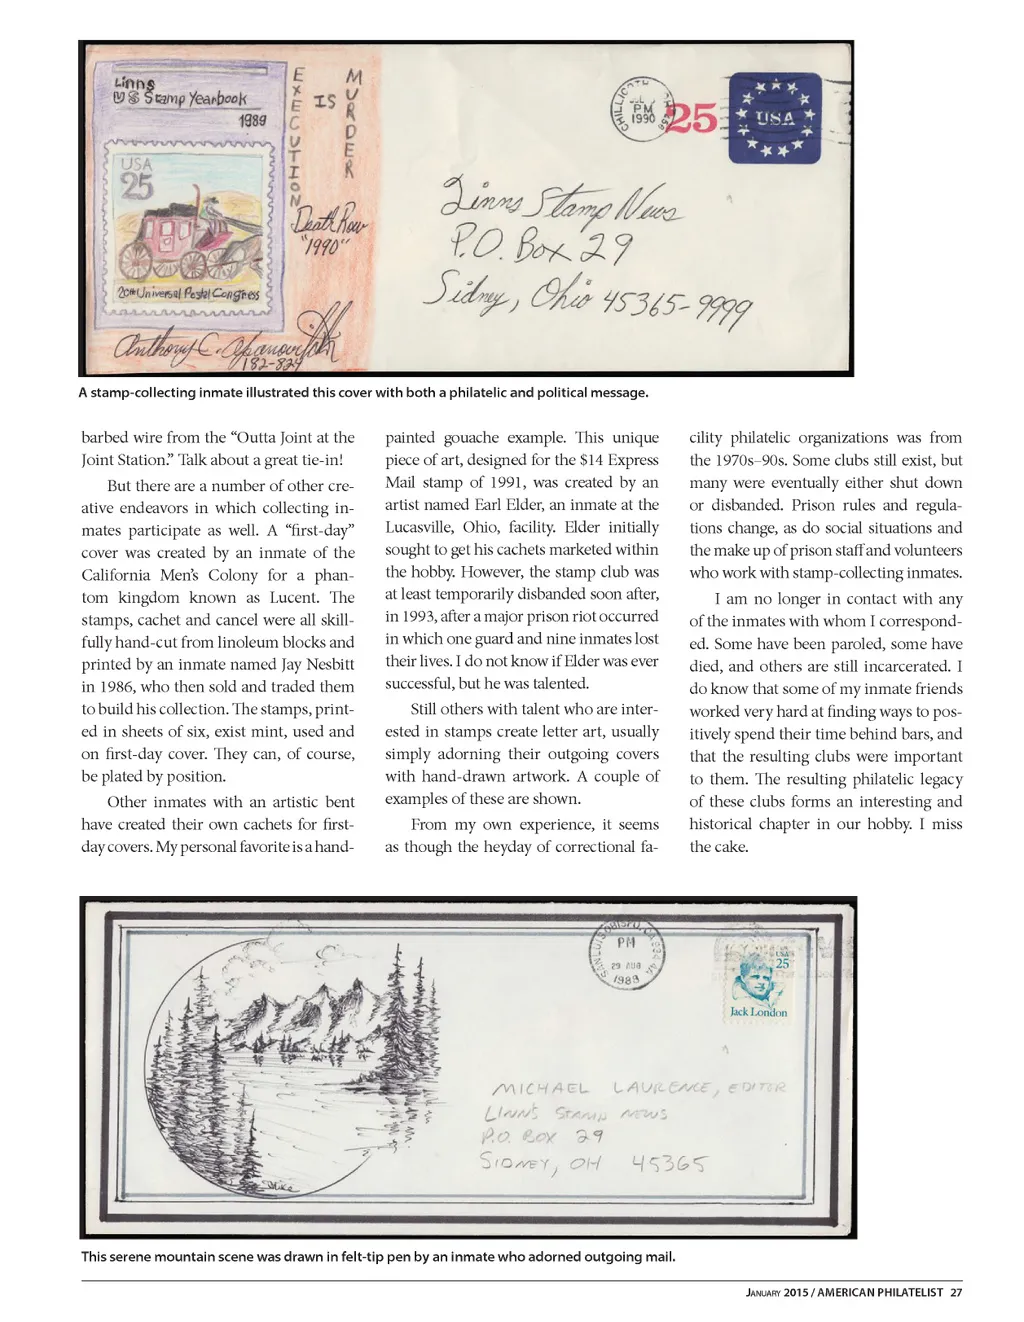 Linns
US Stamp Yearbook
1989
EXECUTION
IS
MURDER
USA
25
20th Universal Postal Congress
Death Row
"1990"
Anthony C. Apanovitch
182-824
CHILLICOTH
PM
1990
25
USA
Linns Stamp News
P.O. Box 29
Sidney, Ohio 45365-9999
A stamp-collecting inmate illustrated this cover with both a philatelic and political message.
barbed wire from the “Outta Joint at the
Joint Station.” Talk about a great tie-in!
But there are a number of other cre-
ative endeavors in which collecting in-
mates participate as well. A “first-day”
cover was created by an inmate of the
California Men’s Colony for a phan-
tom kingdom known as Lucent. The
stamps, cachet and cancel were all skill-
fully hand-cut from linoleum blocks and
printed by an inmate named Jay Nesbitt
in 1986, who then sold and traded them
to build his collection. The stamps, print-
ed in sheets of six, exist mint, used and
on first-day cover. They can, of course,
be plated by position.
Other inmates with an artistic bent
have created their own cachets for first-
day covers. My personal favorite is a hand-
painted gouache example. This unique
piece of art, designed for the $14 Express
Mail stamp of 1991, was created by an
artist named Earl Elder, an inmate at the
Lucasville, Ohio, facility. Elder initially
sought to get his cachets marketed within
the hobby. However, the stamp club was
at least temporarily disbanded soon after,
in 1993, after a major prison riot occurred
in which one guard and nine inmates lost
their lives. I do not know if Elder was ever
successful, but he was talented.
Still others with talent who are inter-
ested in stamps create letter art, usually
simply adorning their outgoing covers
with hand-drawn artwork. A couple of
examples of these are shown.
From my own experience, it seems
as though the heyday of correctional fa-
cility philatelic organizations was from
the 1970s–90s. Some clubs still exist, but
many were eventually either shut down
or disbanded. Prison rules and regula-
tions change, as do social situations and
the make up of prison staff and volunteers
who work with stamp-collecting inmates.
I am no longer in contact with any
of the inmates with whom I correspond-
ed. Some have been paroled, some have
died, and others are still incarcerated. I
do know that some of my inmate friends
worked very hard at finding ways to pos-
itively spend their time behind bars, and
that the resulting clubs were important
to them. The resulting philatelic legacy
of these clubs forms an interesting and
historical chapter in our hobby. I miss
the cake.
SAN LUIS OBISPO, CA
PM
29 AUG
1988
USA
25
Jack London
MICHAEL LAURENCE, EDITOR
LINN'S STAMP NEWS
P.O. BOX 29
SIDNEY, OH 45365
Mike
This serene mountain scene was drawn in felt-tip pen by an inmate who adorned outgoing mail.
JANUARY 2015 / AMERICAN PHILATELIST 27